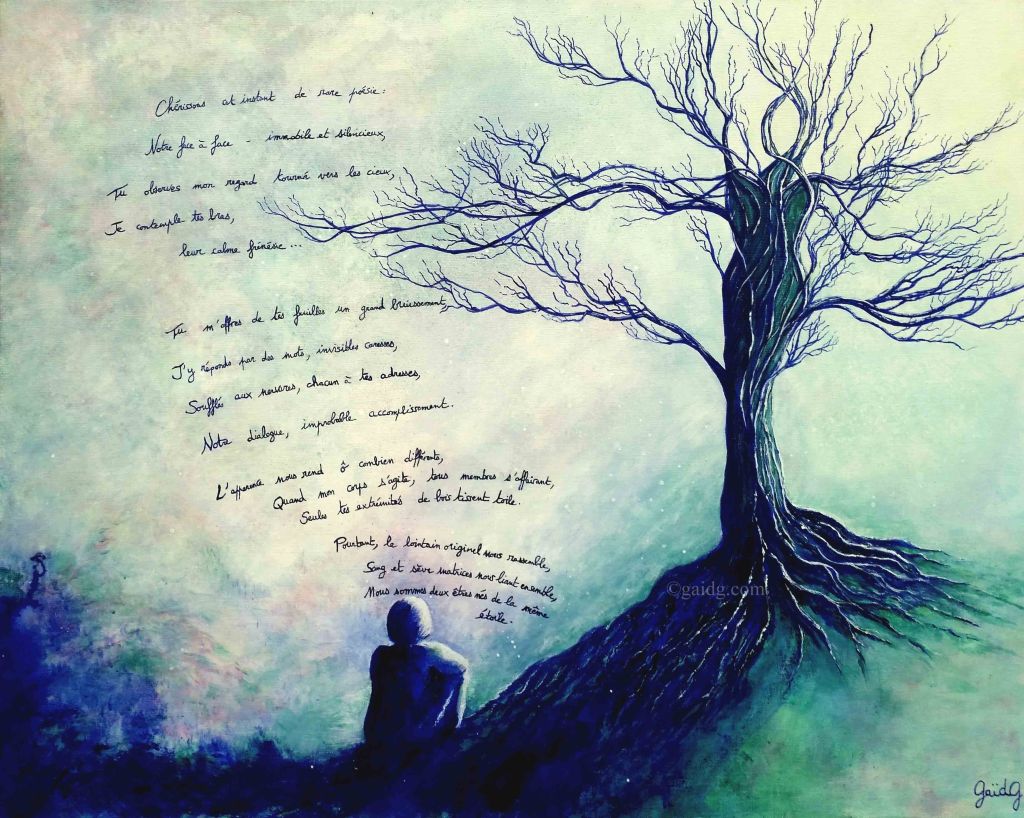 Chérissons cet instant de rare poésie :
Notre face à face - immobile et silencieux,
Tu observes mon regard tourné vers les cieux,
Je contemple tes bras,
leur calme frénésie ...
Tu m'offres de tes feuilles un grand bruissement,
J'y réponds par des mots, invisibles caresses,
Soufflés aux nervures, chacun à tes adresses,
Notre dialogue, improbable accomplissement.
L'apparence nous rend ô combien différents,
Quand mon corps s'agite, tous membres s'affairant,
Seules tes extrémités de bois tissent toile.
Pourtant, le lointain originel nous rassemble,
Sang et sève matrices nous liant ensemble,
Nous sommes deux êtres nés de la même
étoile.
©gaidg.com
GaïdG